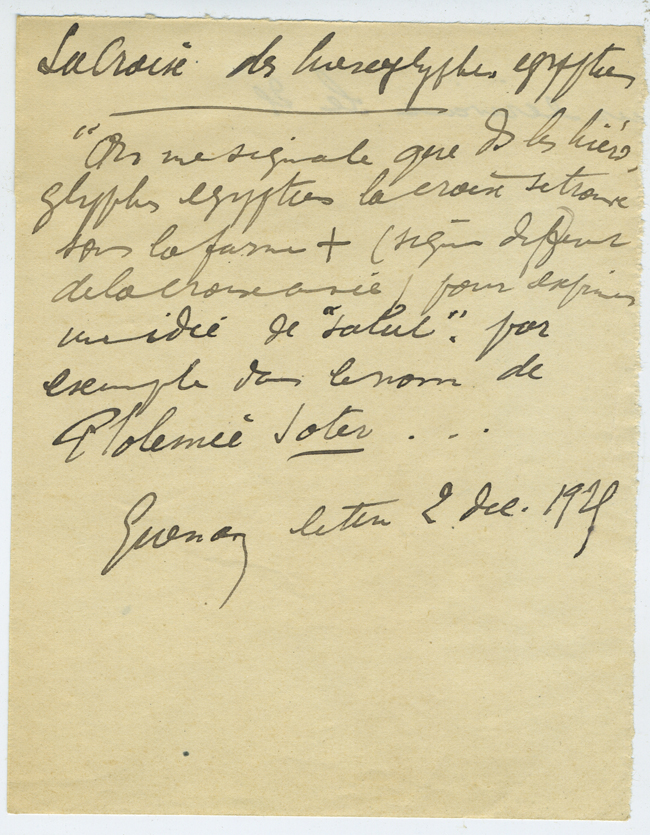 La Croix des hieroglyphes egyptiens
"On me signale que ds les hiéro
glyphes egyptiens la croix se trouve
sous la forme + (signe different
de la croix ansée) pour exprimer
une idée de "salut". par
exemple dans le nom de
Ptolemée Soter . . .
Guenon lettre 2 dec. 1925